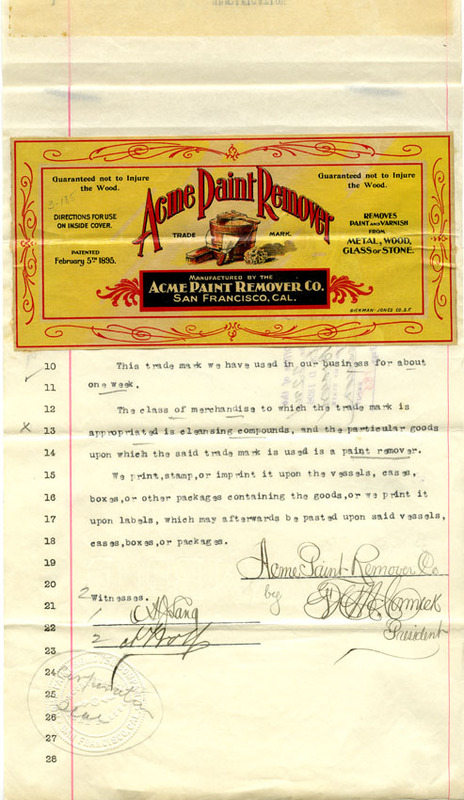 Guaranteed not to Injure
the Wood.
Guaranteed not to Injure
the Wood.
Acme Paint Remover
DIRECTIONS FOR USE
ON INSIDE COVER.
PATENTED
February 5TH 1895.
TRADE MARK.
REMOVES
PAINT AND VARNISH
FROM
METAL, WOOD,
GLASS OR STONE.
MANUFACTURED BY THE
ACME PAINT REMOVER CO.
SAN FRANCISCO, CAL.
DICKMAN-JONES CO. S.F.
10 This trade mark we have used in our business for about
11 one week.
12 The class of merchandise to which the trade mark is
x 13 appropriated is cleansing compounds, and the particular goods
14 upon which the said trade mark is used is a paint remover.
15 We print,stamp,or imprint it upon the vessels, cases,
16 boxes,or other packages containing the goods,or we print it
17 upon labels, which may afterwards be pasted upon said vessels,
18 cases,boxes,or packages.
19 Acme Paint Remover Co
20 by
2 Witnesses.
21 1
President
22 2
23
24
Corporate
25
Seal
26
27
28